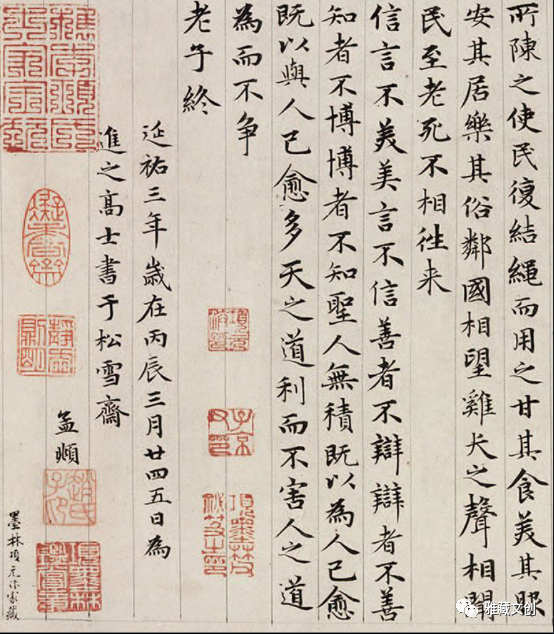 所陳之使民復結繩而用之甘其食美其服
安其居樂其俗鄰國相望雞犬之聲相聞
民至老死不相往来
信言不美美言不信善者不辯辯者不善
知者不博博者不知聖人無積既以為人已愈
既以與人已愈多天之道利而不害人之道
為而不争
老子終
子京父印
項墨林父祕笈之印
延祐三年歲在丙辰三月廿四五日為
進之高士書于松雪齋
孟頫
趙氏子昂
墨林項元汴家藏
雅藏文创